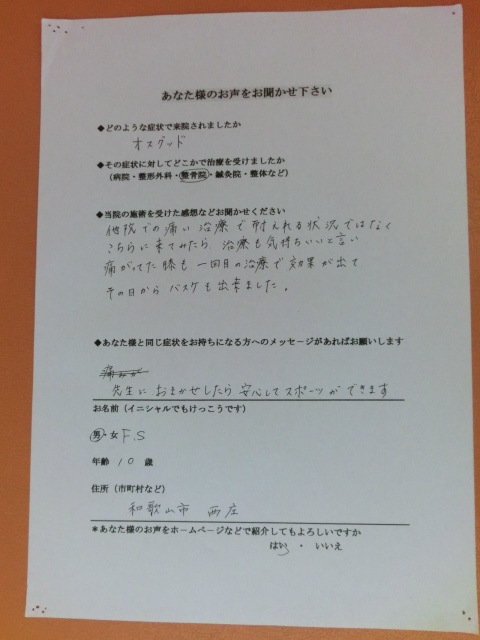 あなた様のお声をお聞かせ下さい
◆どのような症状で来院されましたか
オスグッド
◆その症状に対してどこかで治療を受けましたか
（病院・整形外科・整骨院・鍼灸院・整体など）
◆当院の施術を受けた感想などお聞かせください
他院での痛い治療で耐えれる状況ではなく
こちらに来てみたら、治療も気持ちいいと言い
痛がってた膝も一回目の治療で効果が出て
その日からバスケも出来ました。
◆あなた様と同じ症状をお持ちになる方へのメッセージがあればお願いします
先生におまかせしたら安心してスポーツができます
お名前（イニシャルでもけっこうです）
男・女 F.S
年齢 10 歳
住所（市町村など）
和歌山市 西庄
＊あなた様のお声をホームページなどで紹介してもよろしいですか
はい ・ いいえ